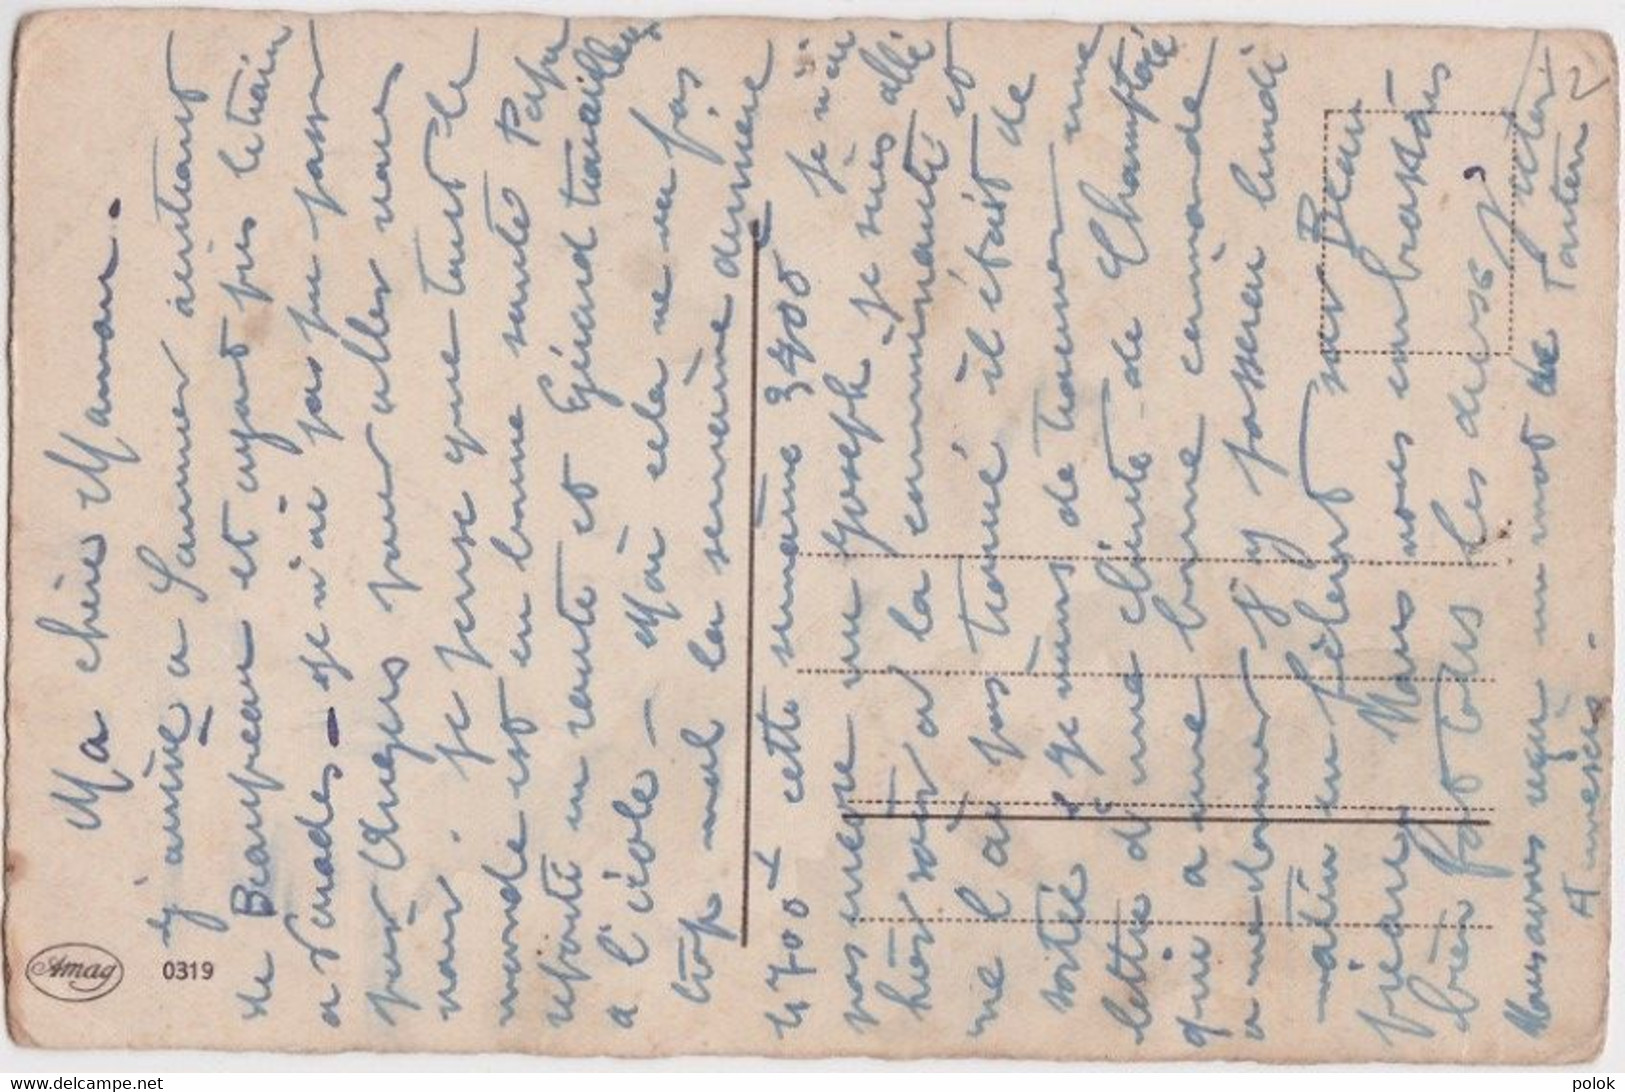 Ma chère Maman.
j'arrive a Saumur rentrant
de Beaupreau et ayant pris le train
a Vendes - je n'ai pas pu passer
par Angers pour aller vous
voir. Je pense que tout le
monde est en bonne santé Papa
reparti en route et Gérard travailleur
a l'école - Moi cela ne va pas
trop mal la semaine dernière
4700 + cette semaine 3400 Je n'ai
pas encore vu Joseph. je suis allé
hier soir a la communauté et
ne l'ai pas trouvé il était de
sortie. Je viens de trouver une
lettre d'une cliente de Chamtocé
qui a une bonne commande
a me donner j'y passerai lundi
matin en filant sur Beau
préau. Mais vous embrasse
bien fort tous les deux
Nous avons reçu un mot de Tantine
Amag
0319
delcampe.net
polok